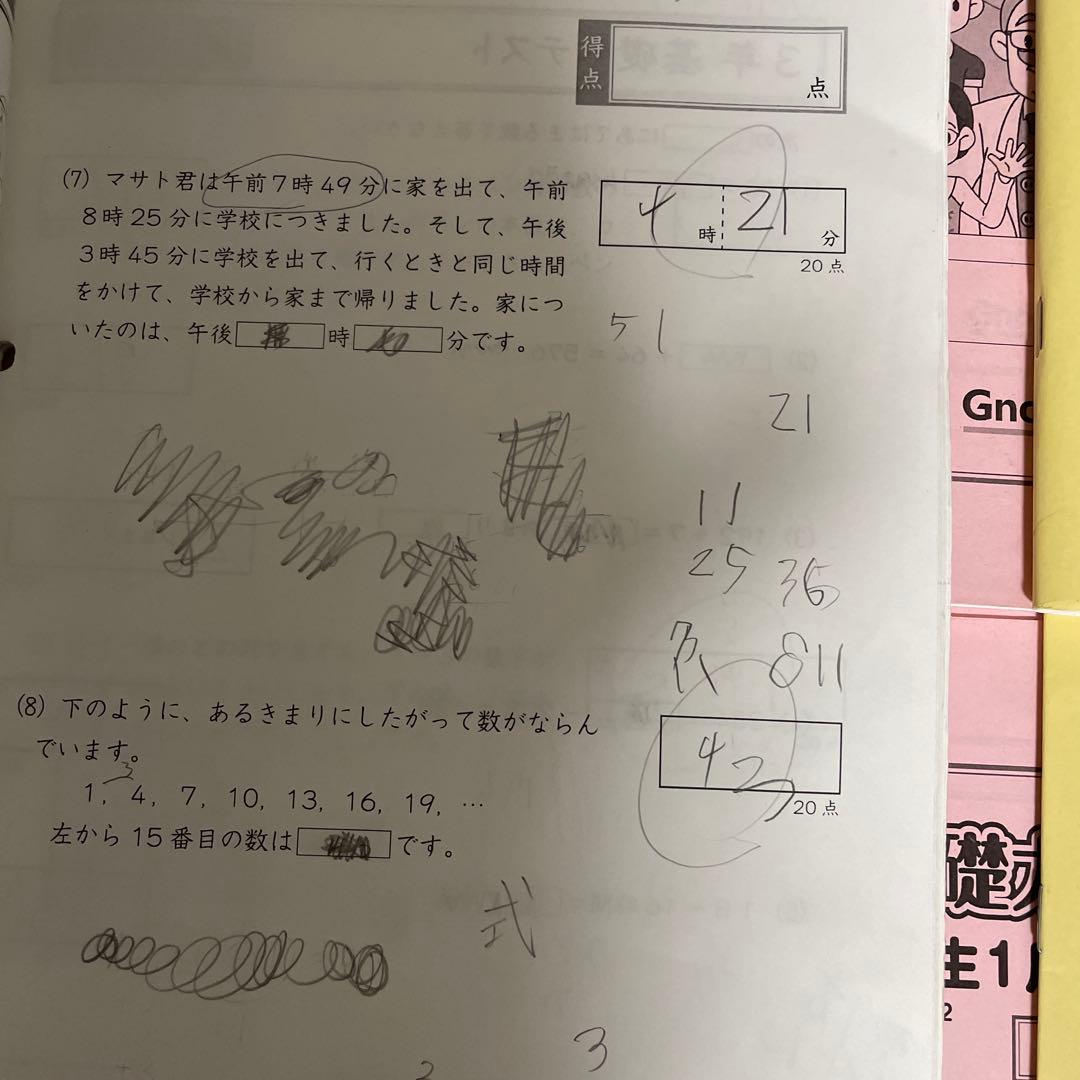 得点
点
(7) マサト君は午前7時49分に家を出て、午前
8時25分に学校につきました。そして、午後
3時45分に学校を出て、行くときと同じ時間
をかけて、学校から家まで帰りました。家につ
いたのは、午後 時 分です。
4時21分
20点
51
21
11
25 36
811
(8) 下のように、あるきまりにしたがって数がならん
でいます。
3
1, 4, 7, 10, 13, 16, 19, …
左から15番目の数は です。
20点
式
3
Gno
礎
生1
2